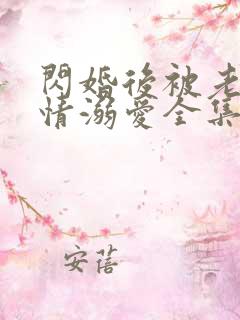 閃婚後被老
情溺愛全集
安蓓